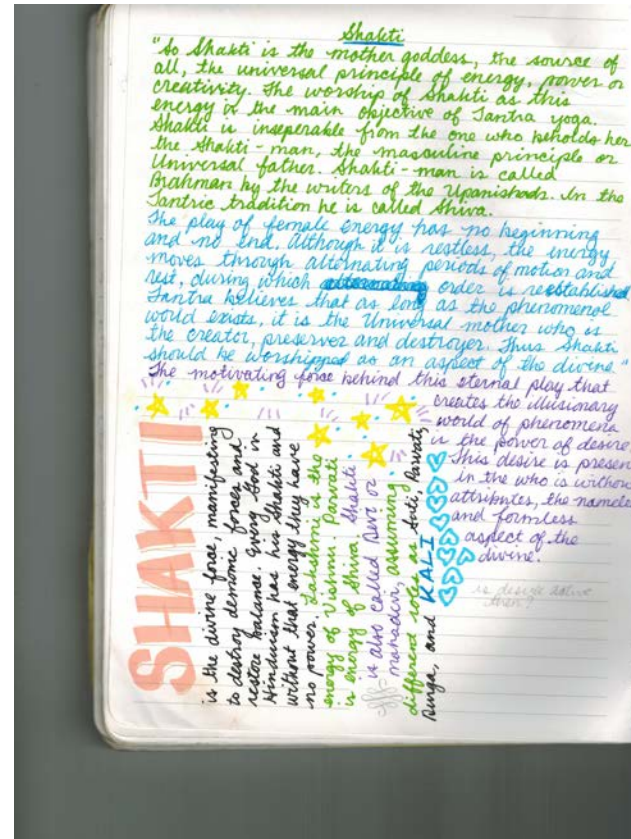 Shakti
"So Shakti is the mother goddess, the source of
all, the universal principle of energy, power or
creativity. The worship of Shakti as this
energy is the main objective of Tantra yoga.
Shakti is inseperable from the one who beholds her
the Shakti-man, the masculine principle or
Universal father. Shakti-man is called
Brahman by the writers of the Upanishads. In the
Tantric tradition he is called Shiva.
The play of female energy has no beginning
and no end. Although it is restless, the energy
moves through alternating periods of motion and
rest, during which order is reestablished
Tantra believes that as long as the phenomenal
world exists, it is the Universal mother who is
the creator, preserver and destroyer. Thus Shakti
should be worshipped as an aspect of the divine."
The motivating force behind this eternal play that
creates the illusionary
world of phenomena
is the power of desire
This desire is presen
in the who is withou
attributes, the namele
and formless
aspect of the
divine.
is desire
then?
SHAKTI
is the divine force, manifesting
to destroy demonic forces and
restore balance. Every God in
Hinduism has his Shakti and
without that energy they have
no power. Lakshmi is the
energy of Vishnu. Parvati
is energy of Shiva. Shakti
is also called Devi or
mahadevi, assuming
different roles as Sati, Parvati,
Durga, and KALI